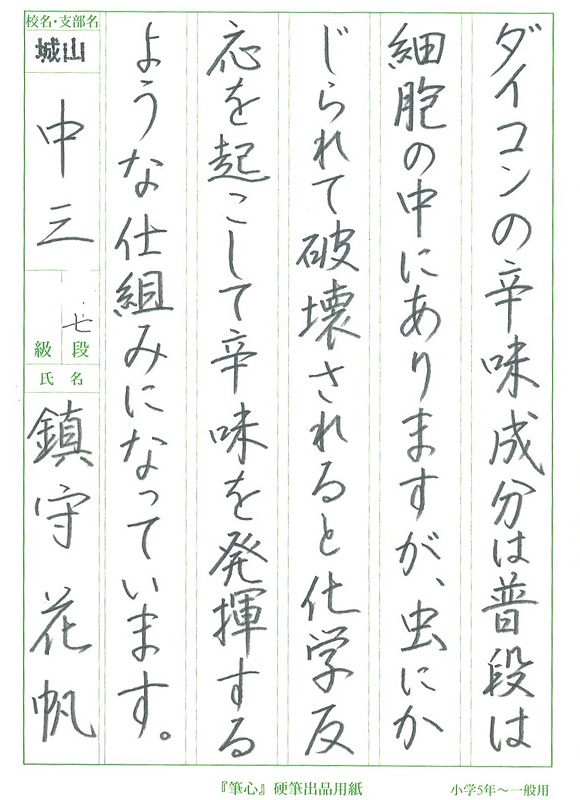 ダイコンの辛味成分は普段は
細胞の中にありますが、虫にか
じられて破壊されると化学反
応を起こして辛味を発揮する
ような仕組みになっています。
校名・支部名
城山
中三
七
級 段
氏 名
鎮守 花帆
『筆心』硬筆出品用紙
小学5年～一般用